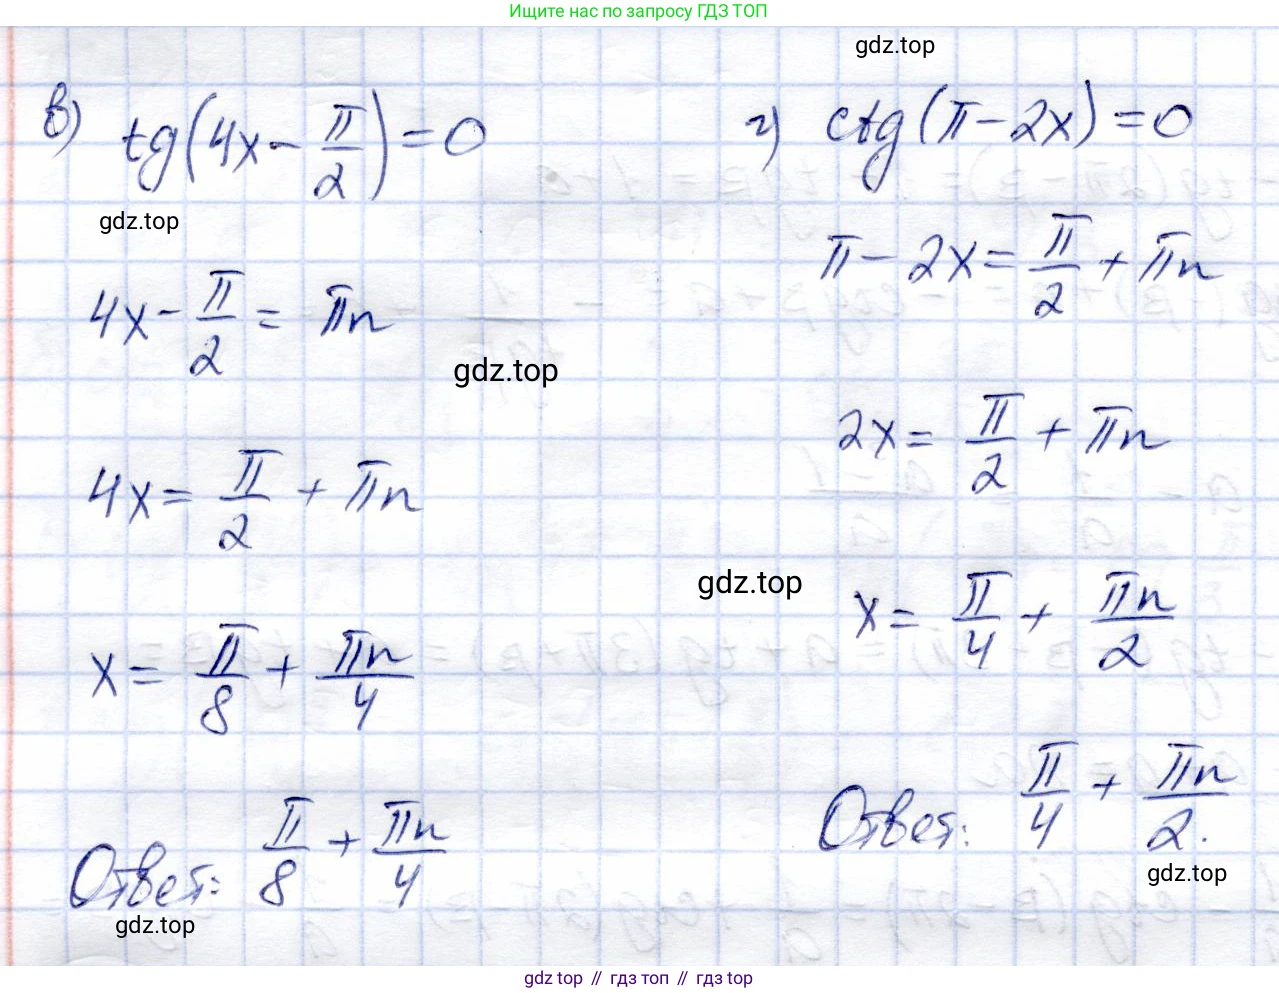 Ищите нас по запросу ГДЗ ТОП
gdz.top
в) tg(4x - π/2) = 0
gdz.top
4x - π/2 = πn
gdz.top
4x = π/2 + πn
x = π/8 + πn/4
Ответ: π/8 + πn/4
gdz.top
г) ctg(π - 2x) = 0
π - 2x = π/2 + πn
2x = π/2 + πn
gdz.top
x = π/4 + πn/2
Ответ: π/4 + πn/2.
gdz.top
gdz top // гдз топ // гдз top